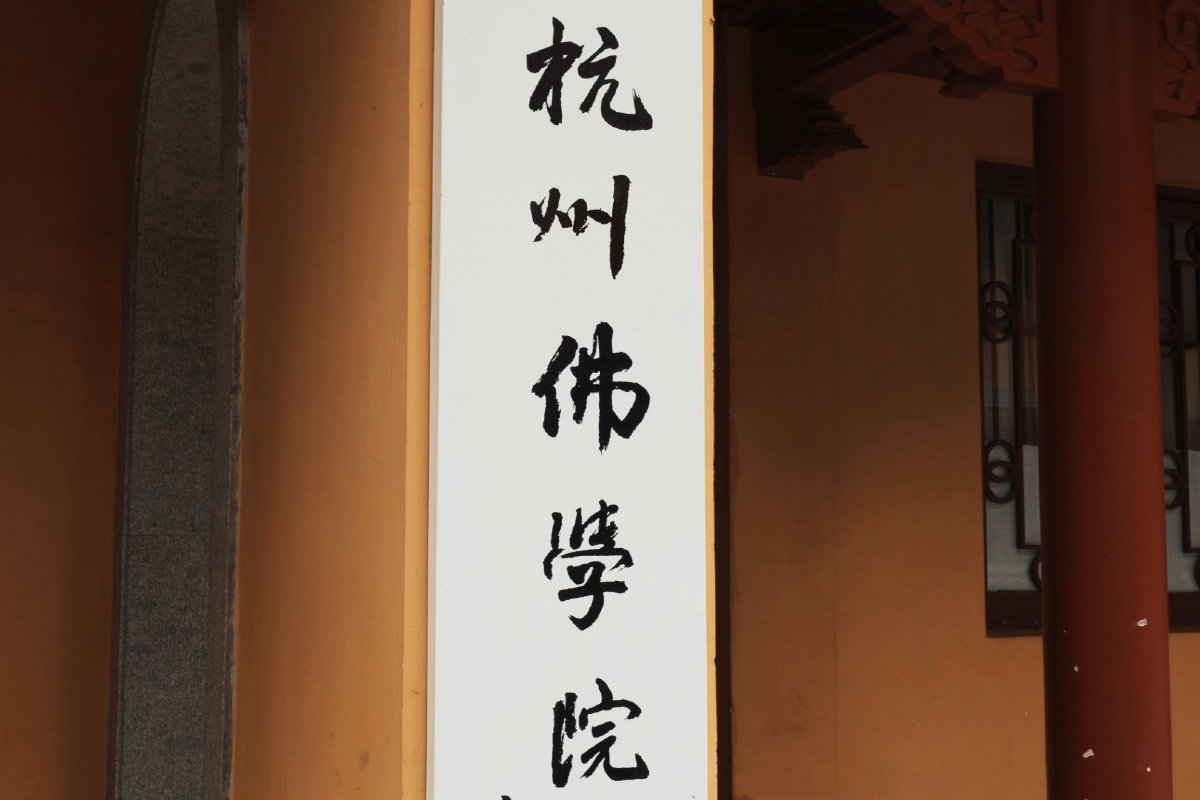 杭州佛學院